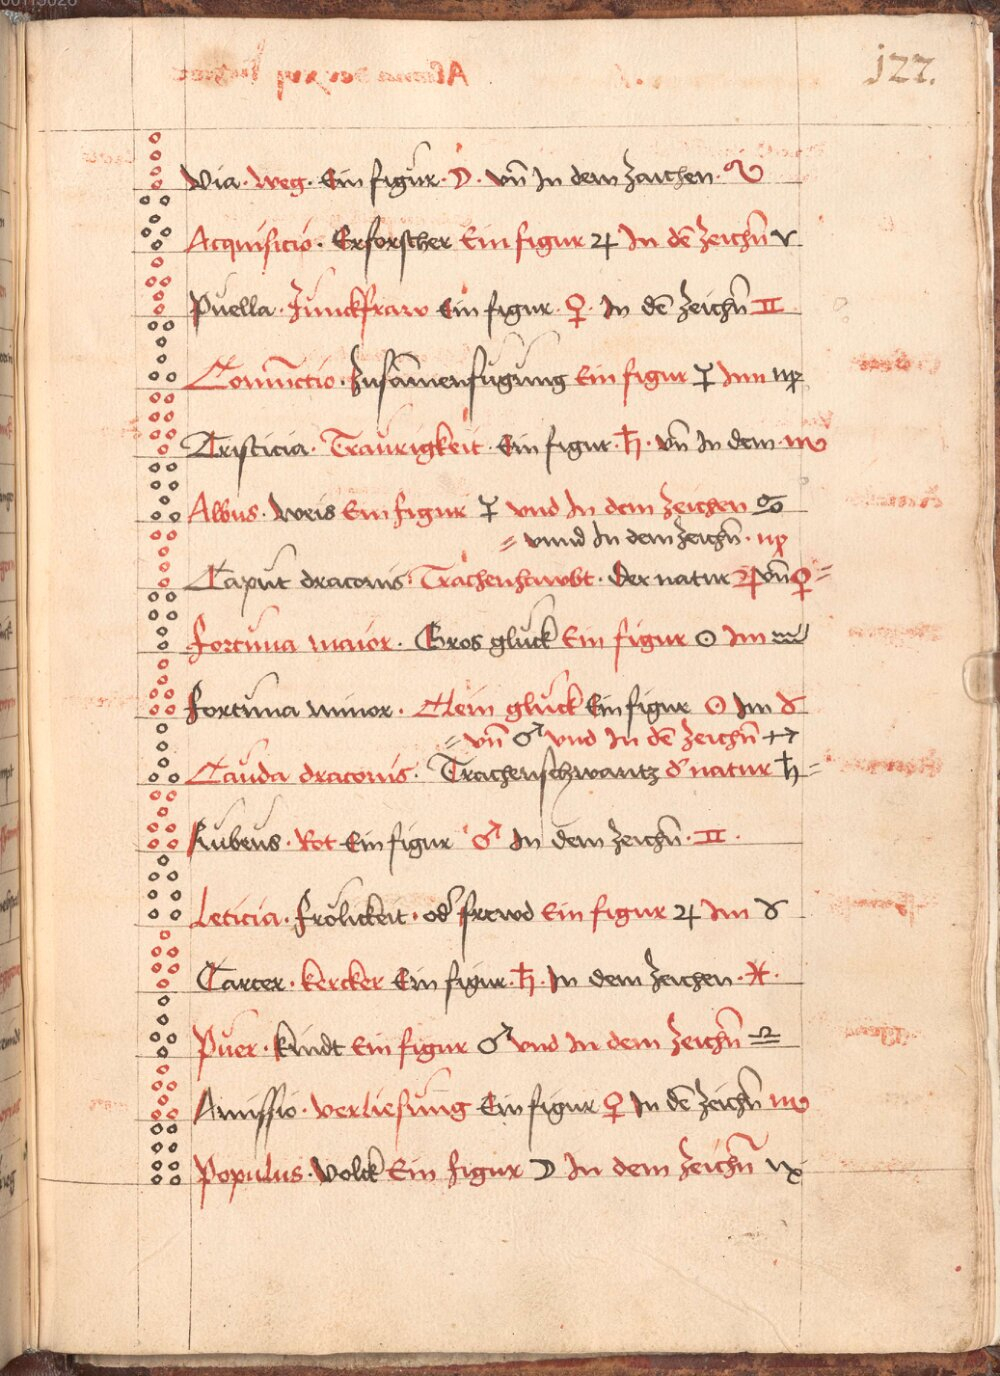 122.
Via · weg · Ein figur · ☽ · vn̄ In dem Zaichen · ♌
Acquisicio · Erforscher Ein figur ♃ In dē Zeichn̄ ♈
Puella · Junckfraw Ein figur · ♀ · In dē Zeichn̄ ♊
Coniūctio · Zusāmenfugung Ein figur ☿ Inn ♍
Tristicia · Traurigkeit · Ein figur · ♄ · vn̄ In dem · ♏
Albus · Weis Ein figur ☿ vnd In dem Zeichen ♋
= vnnd In dem Zeichn̄ · ♍
Caput draconis · Trachenhaubt · der natur ♃ vn̄ ♀ =
Fortuna maior · Gros gluck Ein figur ☉ Im ♒
Fortuna minor · Klein gluck Ein figur ☉ Im ♉
= vn̄ ♂ vnd In dē Zeichn̄ ♐
Cauda draconis · Trachenschwantz d' natur ♄ =
Rubeus · Rot Ein figur ♂ In dem Zeichn̄ · ♊ ·
Leticia · Frölickeit · od' frewd Ein figur ♃ Im ♉
Carcer · kercker Ein figur · ♄ · In dem Zeichen · ♓ ·
Puer · kindt Ein figur ♂ vnd In dem Zeichn̄ ♎
Amissio · verliesung Ein figur ♀ In dē Zeichn̄ ♏
Populus · Volck Ein figur ☽ In dem Zeichn̄ ♑